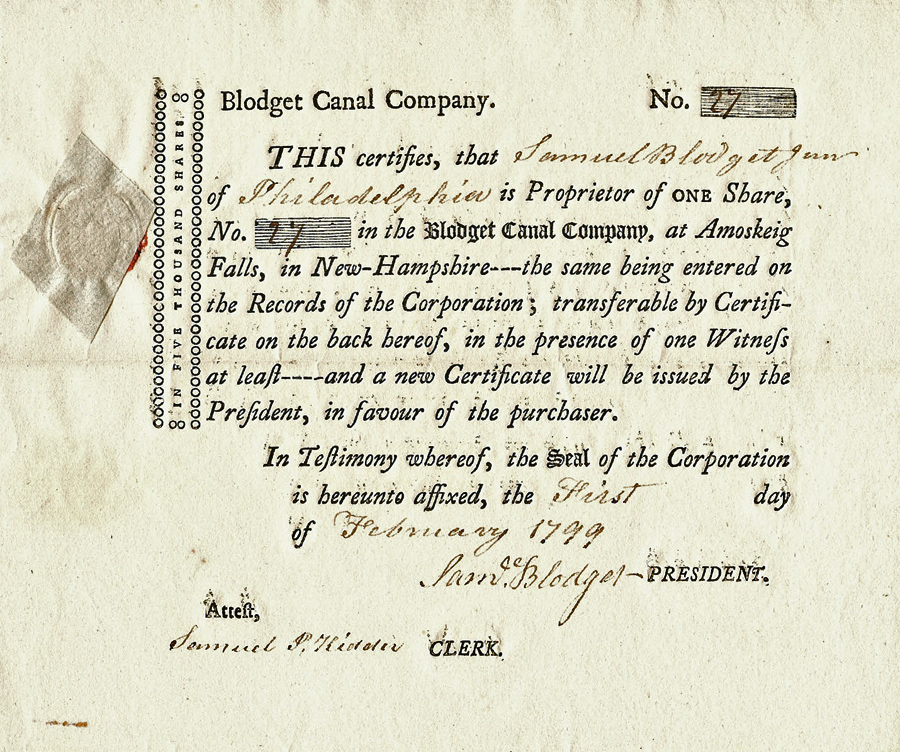 Blodget Canal Company. No. 27
THIS certifies, that Samuel Blodget Jun
of Philadelphia is Proprietor of ONE Share,
No. 27 in the Blodget Canal Company, at Amoskeig
Falls, in New-Hampshire---the same being entered on
the Records of the Corporation; transferable by Certifi-
cate on the back hereof, in the presence of one Witneſs
at leaſt----and a new Certificate will be issued by the
Preſident, in favour of the purchaser.
In Teſtimony whereof, the Seal of the Corporation
is hereunto affixed, the First day
of February 1799
Saml. Blodget PRESIDENT.
Atteſt,
Samuel P. Kidder CLERK.
IN FIVE THOUSAND SHARES.